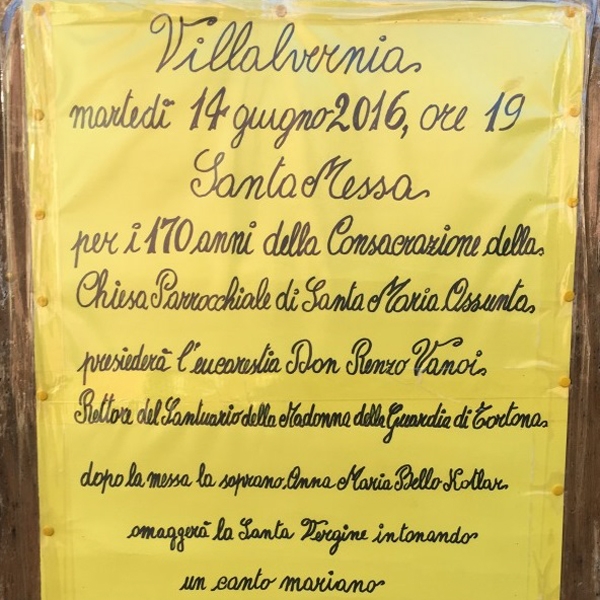 Villalvernia
martedì 14 giugno 2016, ore 19
Santa Messa
per i 170 anni della Consacrazione della
Chiesa Parrocchiale di Santa Maria Assunta
presiederà l'eucarestia Don Renzo Vanoi
Rettore del Santuario della Madonna della Guardia di Tortona
dopo la messa la soprano Anna Maria Bello Kotlar
omaggerà la Santa Vergine intonando
un canto mariano